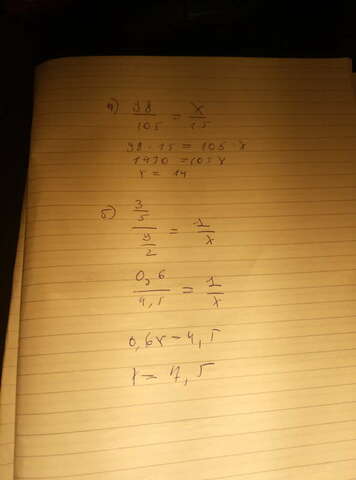 а) 98/105 = x/15
98 · 15 = 105 · x
1470 = 105x
x = 14
б) 3/5 / 9/2 = 1/x
0,6/4,5 = 1/x
0,6x = 4,5
x = 7,5